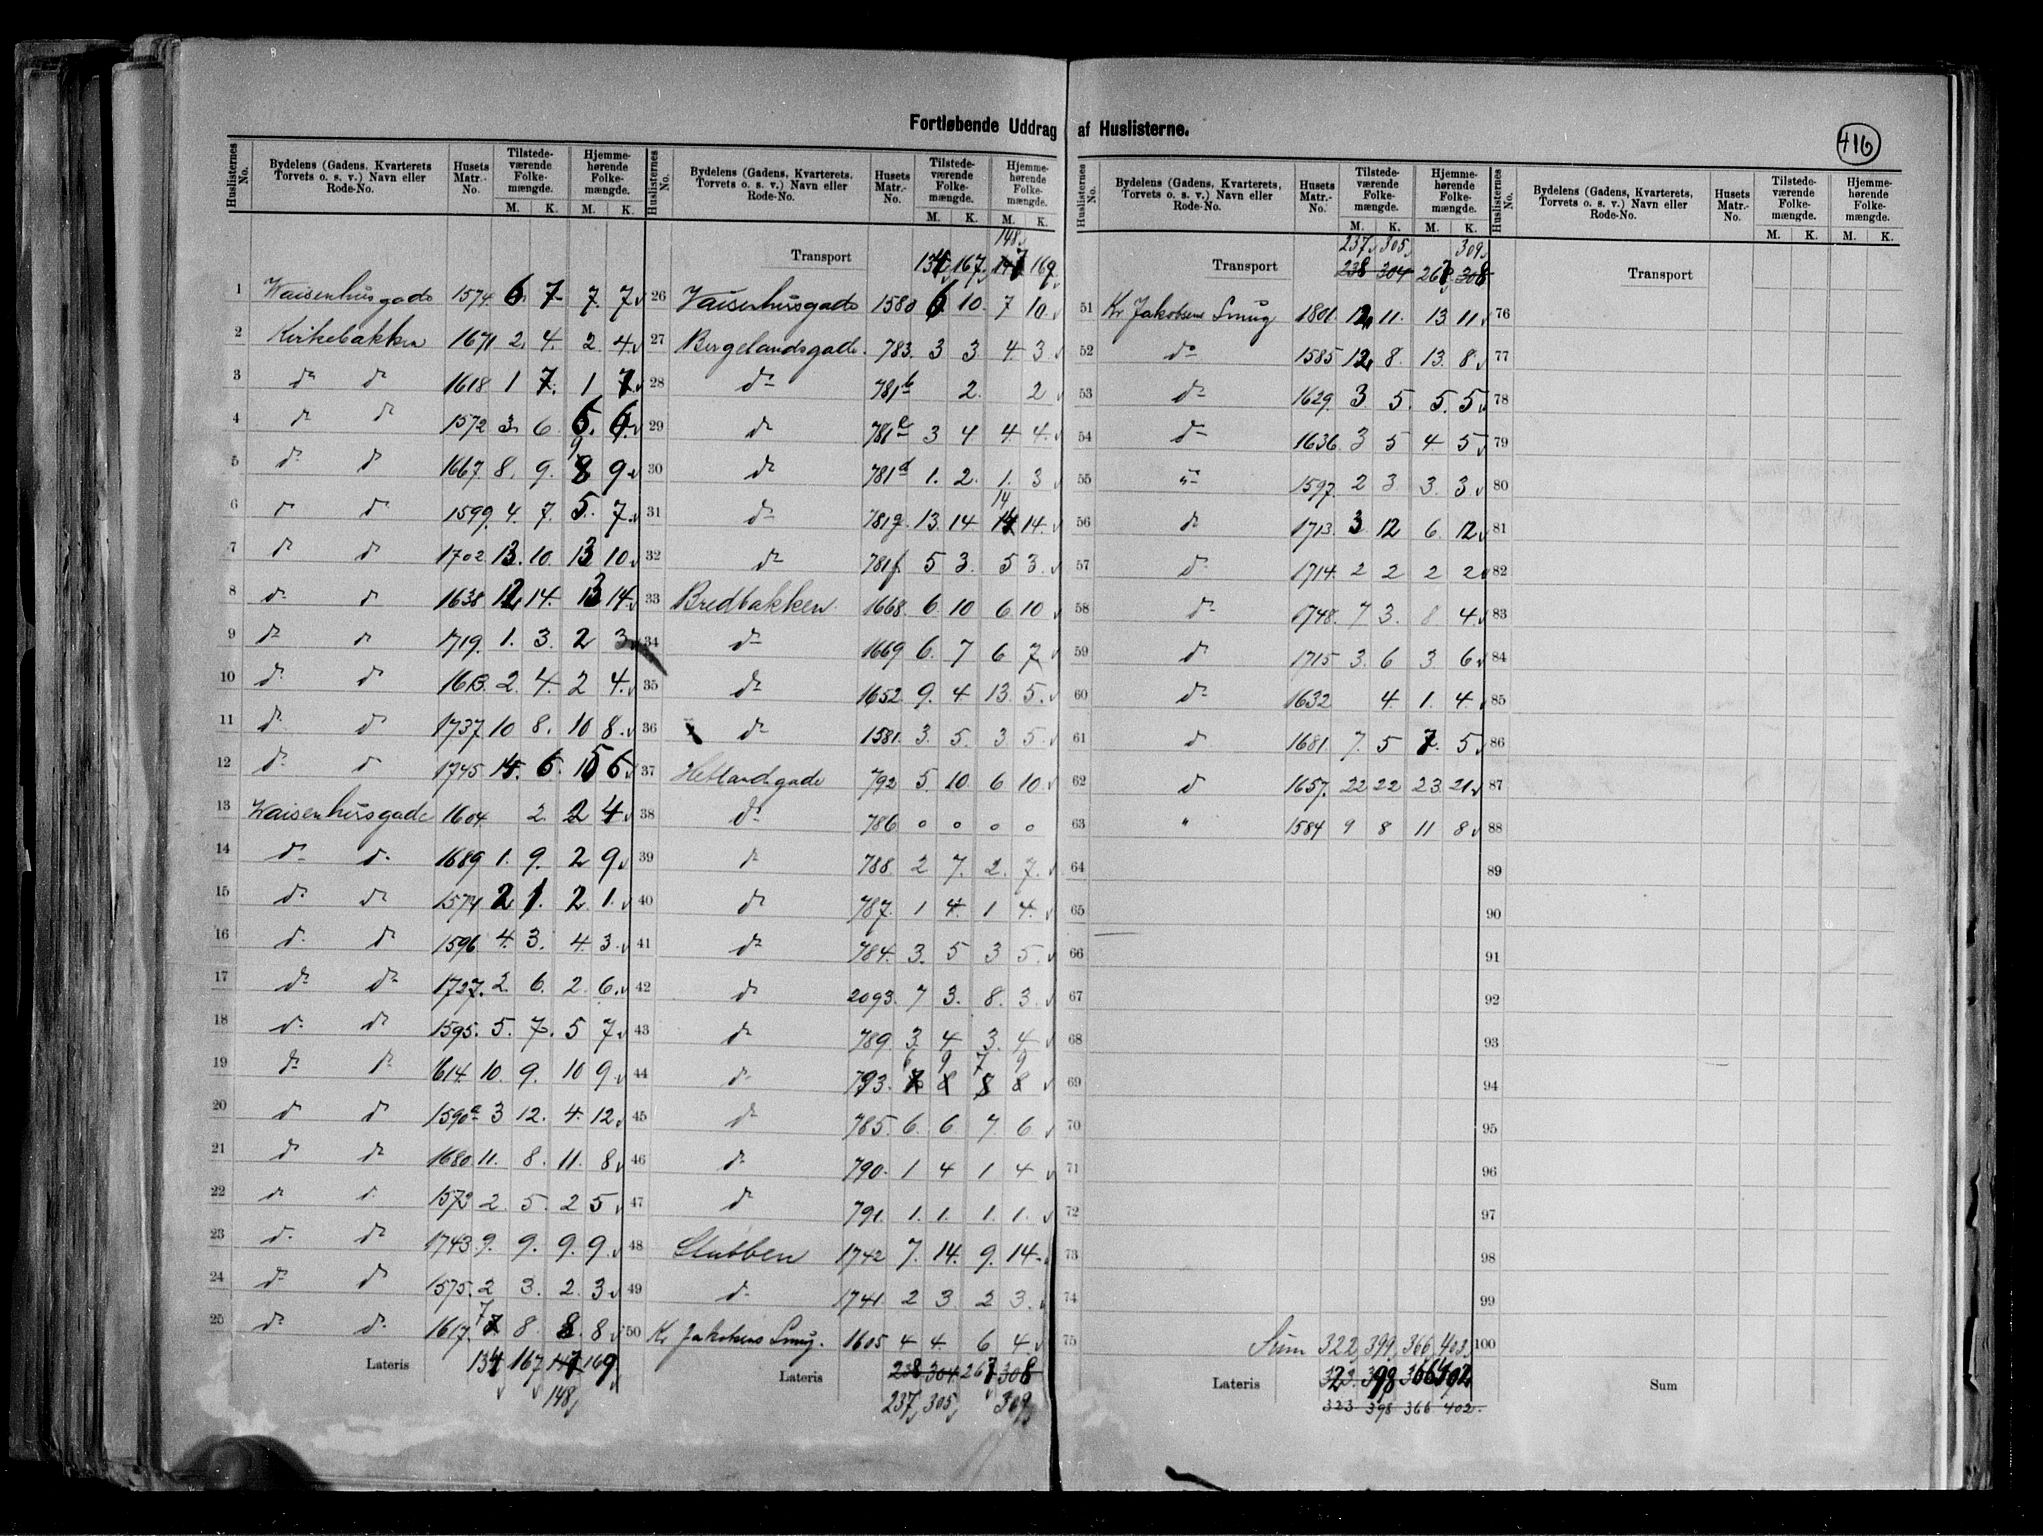 Fortløbende Uddrag af Huslisterne.
416
Huslisternes No. Bydelens (Gadens, Kvarterets Torvets o. s. v.) Navn eller Rode-No. Husets Matr.-No. Tilstedeværende Folkemængde. M. K. Hjemmehørende Folkemængde. M. K.
1 Waisenhusgade 1574 6. 7 7. 7
2 Kirkebakken 1671 2. 4. 2 4.
3 do do 1618 1 7. 1 7
4 do do 1572 3. 6 6.
5 do do 1667. 8. 9. 9 8 9
6 do do 1599. 4. 7. 5. 7.
7 do do 1702 13. 10. 13 10
8 do do 1638 12 14. 13 14.
9 do do 1719. 1. 3. 2 3
10 do do 1613. 2. 4. 2 4.
11 do do 1737. 10 8. 10 8.
12 do do 1745 6. 6
13 Waisenhusgade 1604 2. 2 4
14 do do 1689 1. 9. 2 9
15 do do 1571 2 1. 2 1.
16 do do 1596 4. 3. 4. 3.
17 do do 1727. 2. 6. 2 6.
18 do do 1595. 5. 7. 5 7
19 do do 1614. 10. 9. 10 9
20 do do 1590a 3 12. 4. 12
21 do do 1680 11. 8. 11. 8
22 do do 1573 2. 5. 2 5
23 do do 1743. 9. 9. 9. 9
24 do do 1575. 2 3. 2. 3
25 do do 1617. 7 8. 8. 8
Lateris 134 167 147 169
148
Huslisternes No. Bydelens (Gadens, Kvarterets. Torvets o. s. v.) Navn eller Rode-No. Husets Matr.-No. Tilstedeværende Folkemængde. M. K. Hjemmehørende Folkemængde. M. K.
148
Transport 134 167. 147 169
26 Vaisenhusgade 1580 6. 10. 7 10
27 Bergelandsgade. 783. 3 3. 4. 3
28 do 781b 2. 2
29 do 781e 3 4 4. 4.
30 do 781d 1. 2. 1. 3
31 do 781g. 13. 14. 14 14.
32 do 781f. 5 3. 5 3.
33 Bredbakken. 1668. 6. 10 6 10
34 do 1669 6. 7 6 7
35 do 1652. 9. 4 13. 5.
36 do 1581. 3. 5. 3 5.
37 Hetlandsgade 792 5. 10. 6 10.
38 do 786 0 0 0 0
39 do 788. 2 7. 2. 7.
40 do 787. 1 4. 1 4.
41 do 784. 3. 5 3 5.
42 do 2093. 7 3. 8. 3.
43 do 789. 3. 4 3. 4
44 do 793. 6 9 7 9 8 8 8
45 do 785. 6. 6 7. 6
46 do 790. 1 4 1 4
47 do 791. 1. 1. 1. 1.
48 Stubben 1742 7. 14. 9. 14
49 do 1741. 2 3 2 3.
50 Kr Jakobsens Smug. 1605 4 4. 6 4.
Lateris 238 304 267 308
237 305 309
Huslisternes No. Bydelens (Gadens, Kvarterets, Torvets o. s. v.) Navn eller Rode-No. Husets Matr.-No. Tilstedeværende Folkemængde. M. K. Hjemmehørende Folkemængde. M. K.
237 305 309
Transport 238 304 267 308
51 Kr Jakobsens Smug 1801. 12 11. 13 11
52 do 1585. 12 8. 13. 8
53 do 1629. 3. 5. 5. 5
54 do 1636. 3 5 4 5
55 do 1597. 2 3 3. 3
56 do 1713. 3 12 6. 12
57 do 1714. 2 2 2 2
58 do 1748. 7 3. 8 4.
59 do 1715 3. 6 3 6
60 do 1632 4 1. 4
61 do 1681. 7. 5 7. 5
62 do 1657. 22 22 23. 21
63 " 1584 9 8 11 8
64
65
66
67
68
69
70
71
72
73
74
75
Sum 322 399 366 403
Lateris 323. 398 366 402
323 398 366 402.
Huslisternes No. Bydelens (Gadens, Kvarterets, Torvets o. s. v.) Navn eller Rode-No. Husets Matr.-No. Tilstedeværende Folkemængde. M. K. Hjemmehørende Folkemængde. M. K.
Transport
76
77
78
79
80
81
82
83
84
85
86
87
88
89
90
91
92
93
94
95
96
97
98
99
100
Sum